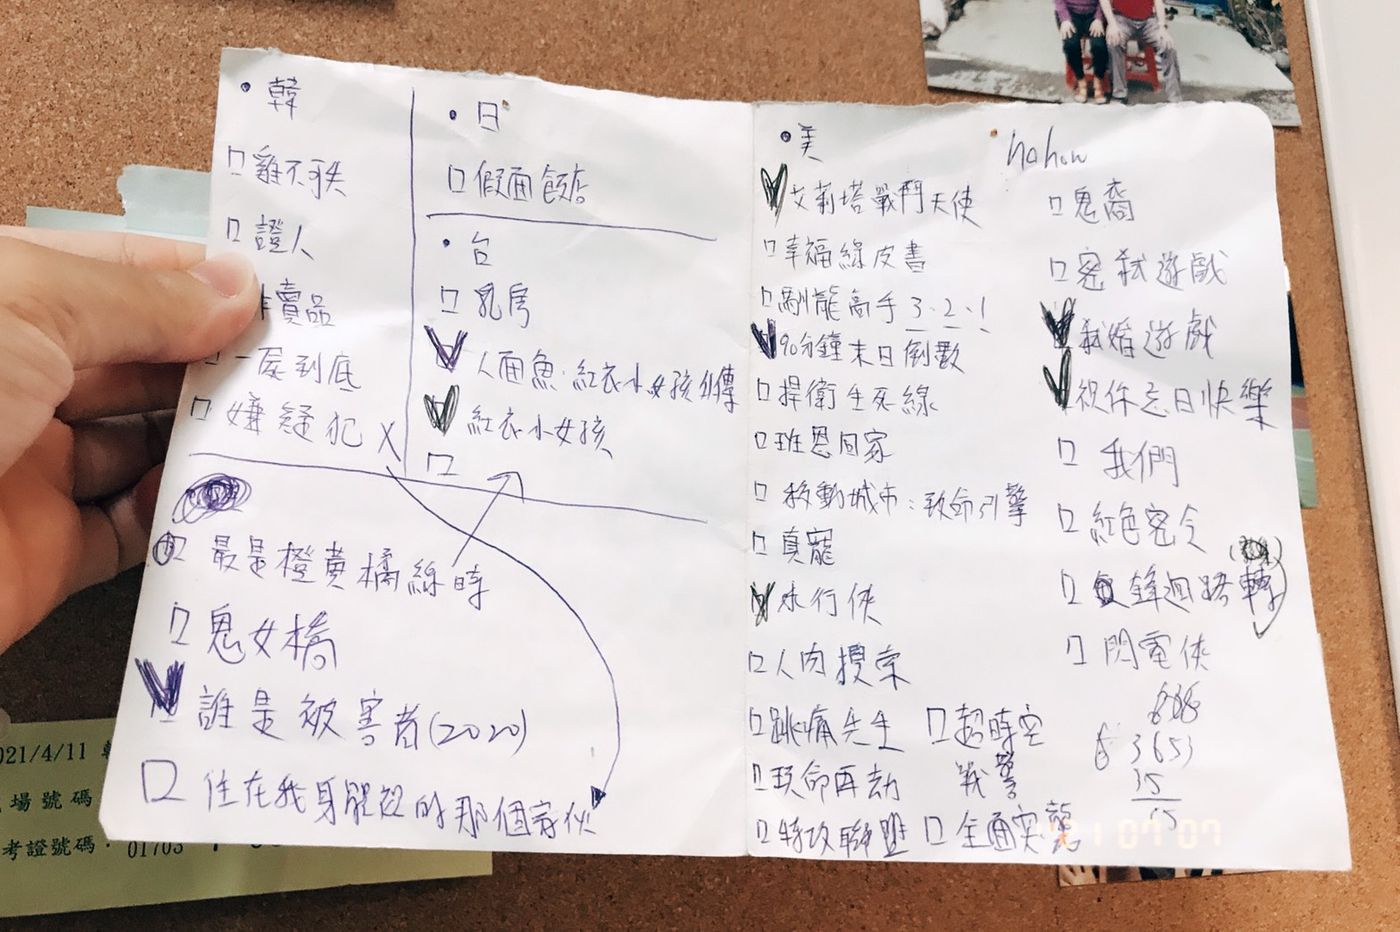 • 韓
□ 雞不秩
□ 證人
賣品
□ 一屍到底
□ 嫌疑犯 X
• 日
□ 假面飯店
• 台
□ 乳房
人面魚:紅衣小女孩外傳
紅衣小女孩
□
□ 最是橙黃橘綠時
□ 鬼女橋
誰是被害者(2020)
□ 住在我身體裡的那個家伙
• 美
艾莉塔戰鬥天使
□ 幸福綠皮書
□ 馴龍高手 3.2.1
90分鐘末日倒數
□ 捍衛生死線
□ 班恩回家
□ 移動城市:致命引擎
□ 真寵
水行俠
□ 人肉搜索
□ 跳痛先生
□ 玩命再劫
□ 特攻聯盟
□ 超時空
戰警
□ 全面突襲
hahow
□ 鬼裔
□ 密弒遊戲
弒婚遊戲
祝你忌日快樂
□ 我們
□ 紅色密令
□ 鋒迴路轉
□ 閃電俠
608
6 3653
35
'21 07 07
2021/4/11
場號碼
考證號碼: 01703